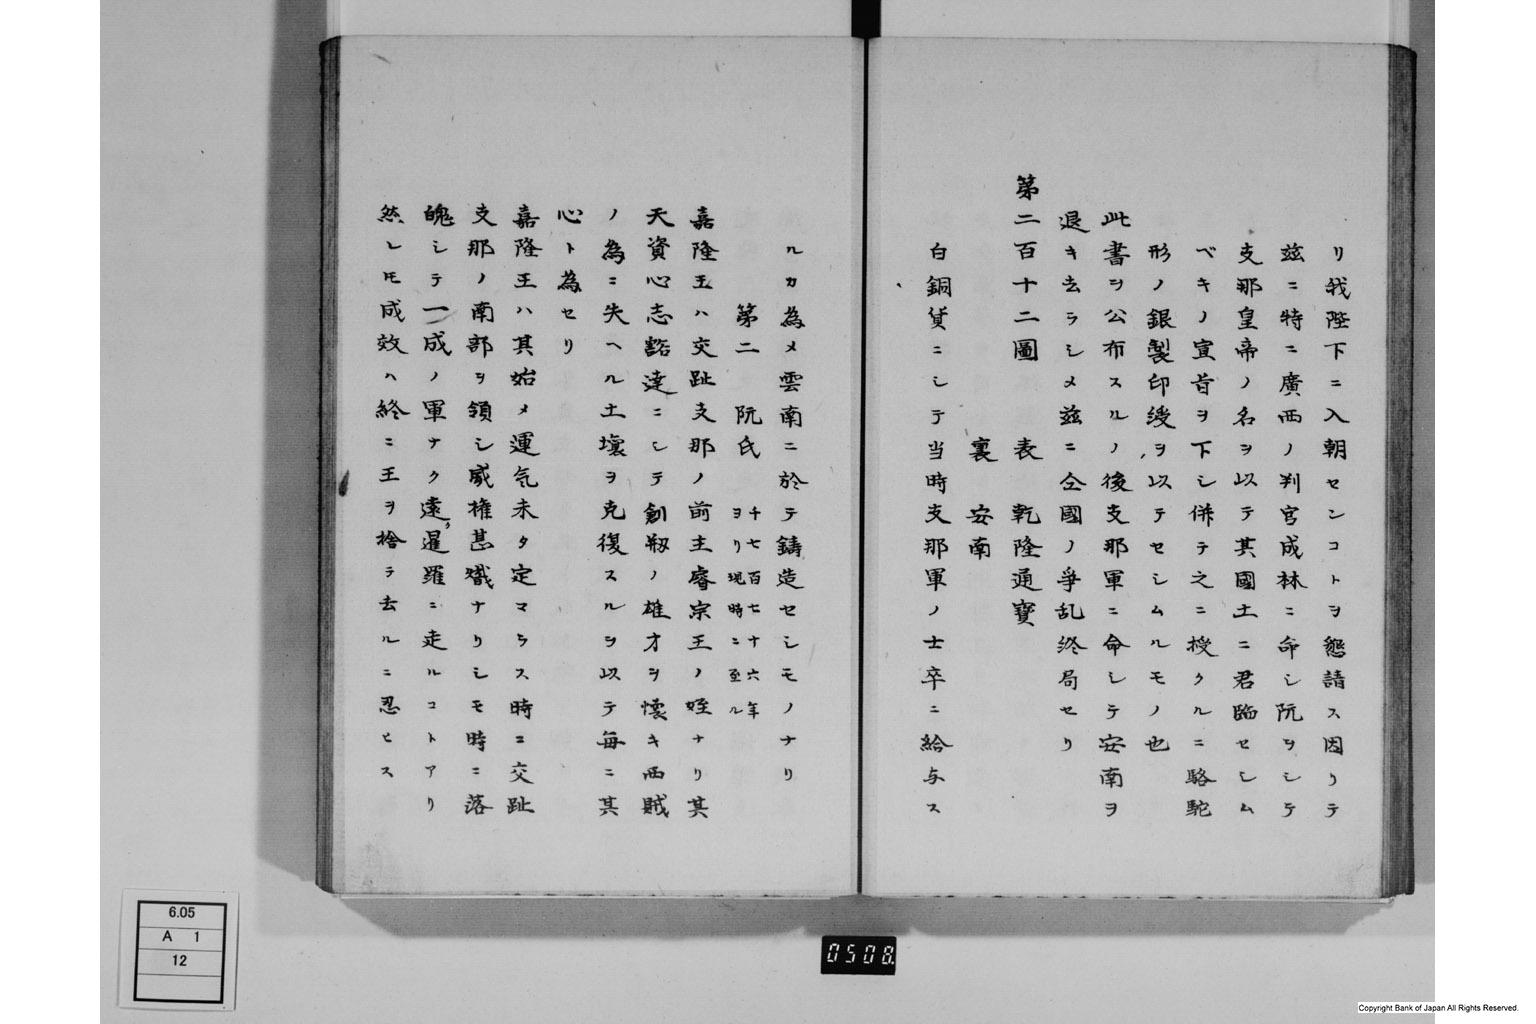 リ我陛下ニ入朝センコトヲ懇請ス因リテ
茲ニ特ニ廣西ノ判官成林ニ命シ阮ヲシテ
支那皇帝ノ名ヲ以テ其國土ニ君臨セシム
ベキノ宣旨ヲ下シ併テ之ニ授クルニ駱駝
形ノ銀製印綬ヲ以テセシムルモノ也
此書ヲ公布スルノ後支那軍ニ命シテ安南ヲ
退キ去ラシメ茲ニ仝國ノ爭乱終局セリ
第二百十二圖 表 乾隆通寳
裏 安南
白銅貨ニシテ当時支那軍ノ士卒ニ給与ス
ルカ為メ雲南ニ於テ鋳造セシモノナリ
第二 阮氏 千七百七十六年ヲリ現時ニ至ル
嘉隆王ハ交趾支那ノ前主睿宗王ノ姪ナリ其
天資心志豁達ニシテ創剏ノ雄才ヲ懐キ西賊
ノ為ニ失ヘル土壌ヲ克復スルヲ以テ毎ニ其
心ト為セリ
嘉隆王ハ其始メ運気未タ定マラス時ニ交趾
支那ノ南部ヲ領シ威権甚熾ナリシモ時ニ落
魄シテ一成ノ軍ナク遠ク暹羅ニ走ルコトアリ
然レ𪜈成效ハ終ニ王ヲ捨テ去ルニ忍ヒス
0508
6.05
A 1
12
Copyright Bank of Japan All Rights Reserved.